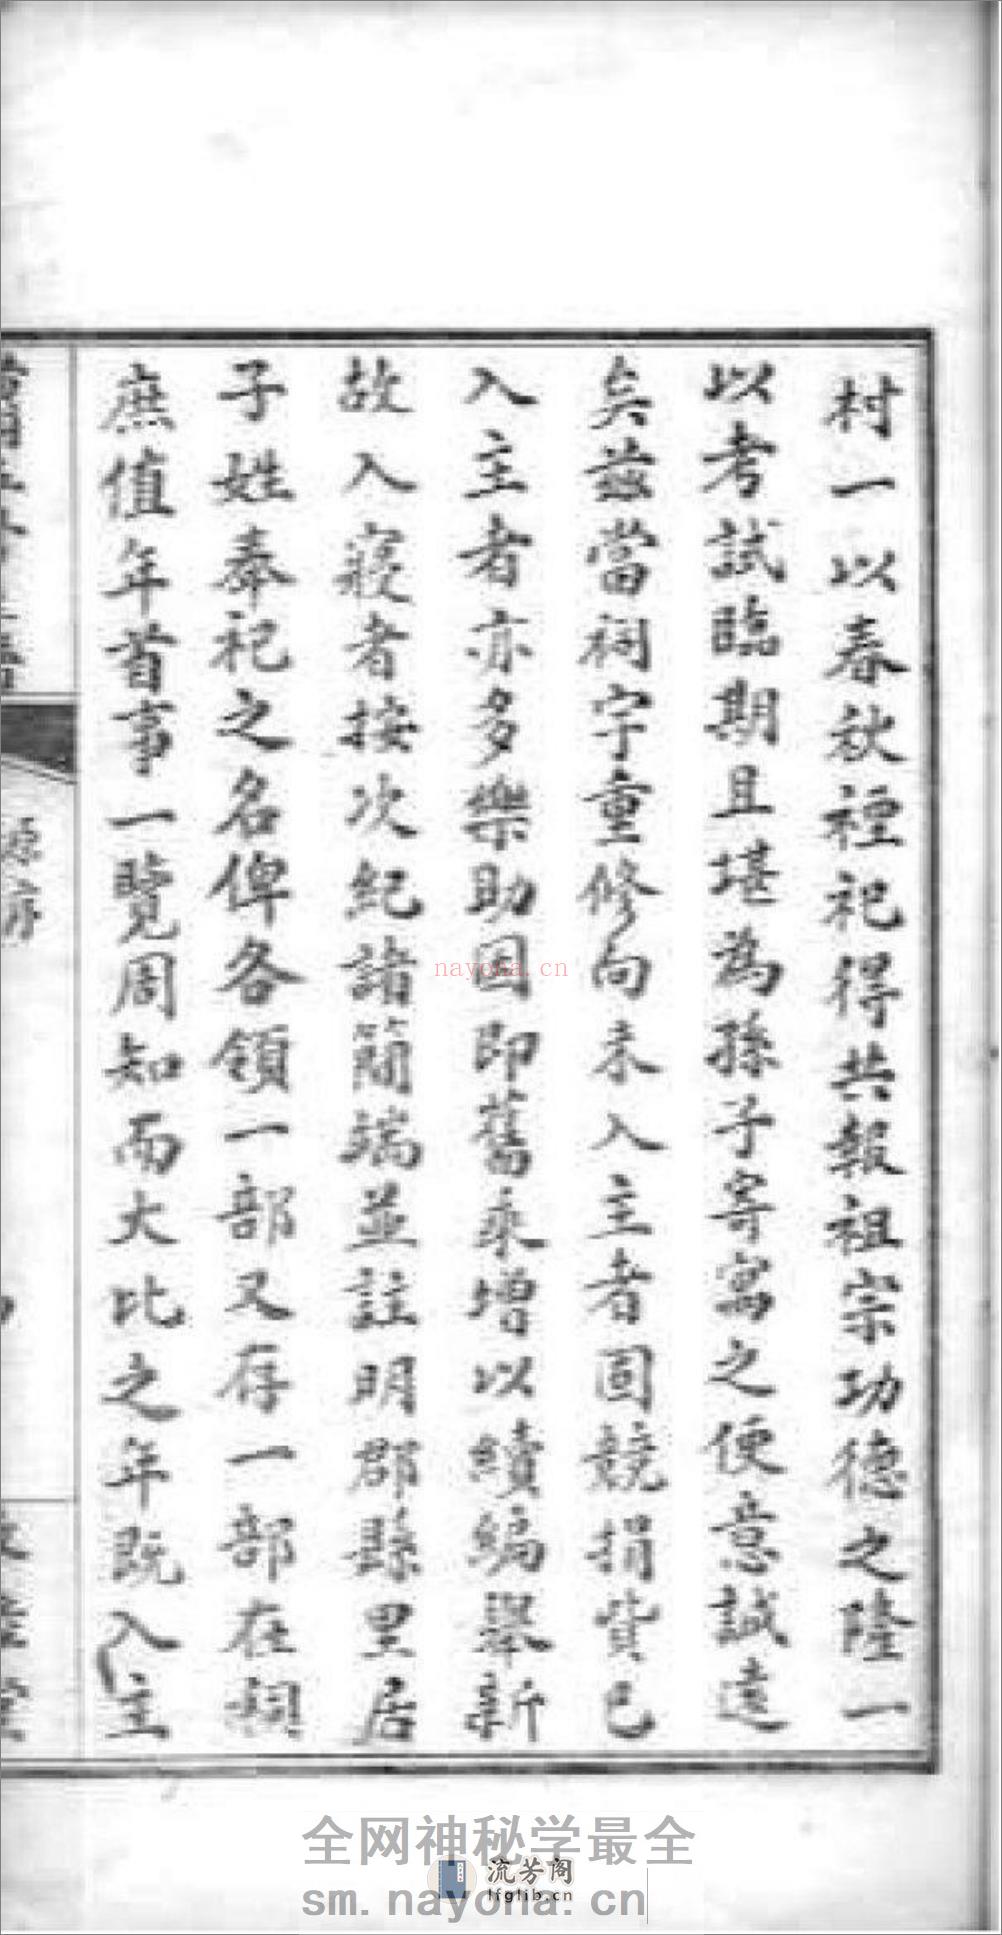 村一以春秋禋祀得共報祖宗功德之隆一
以考試臨期且堪為孫子寄寓之便意誠遠
矣茲當祠宇重修向未入主者固競捐貲已
入主者亦多樂助因即舊來增以續編舉新
故入寢者按次紀諸簡端並註明郡縣里居
子姓奉祀之名俾各領一部又存一部在祠
庶值年首事一覽周知而大比之年既入主
源序
nayona.cn
全网神秘学最全
流芳阁
lfglib.cn
sm.nayona.cn